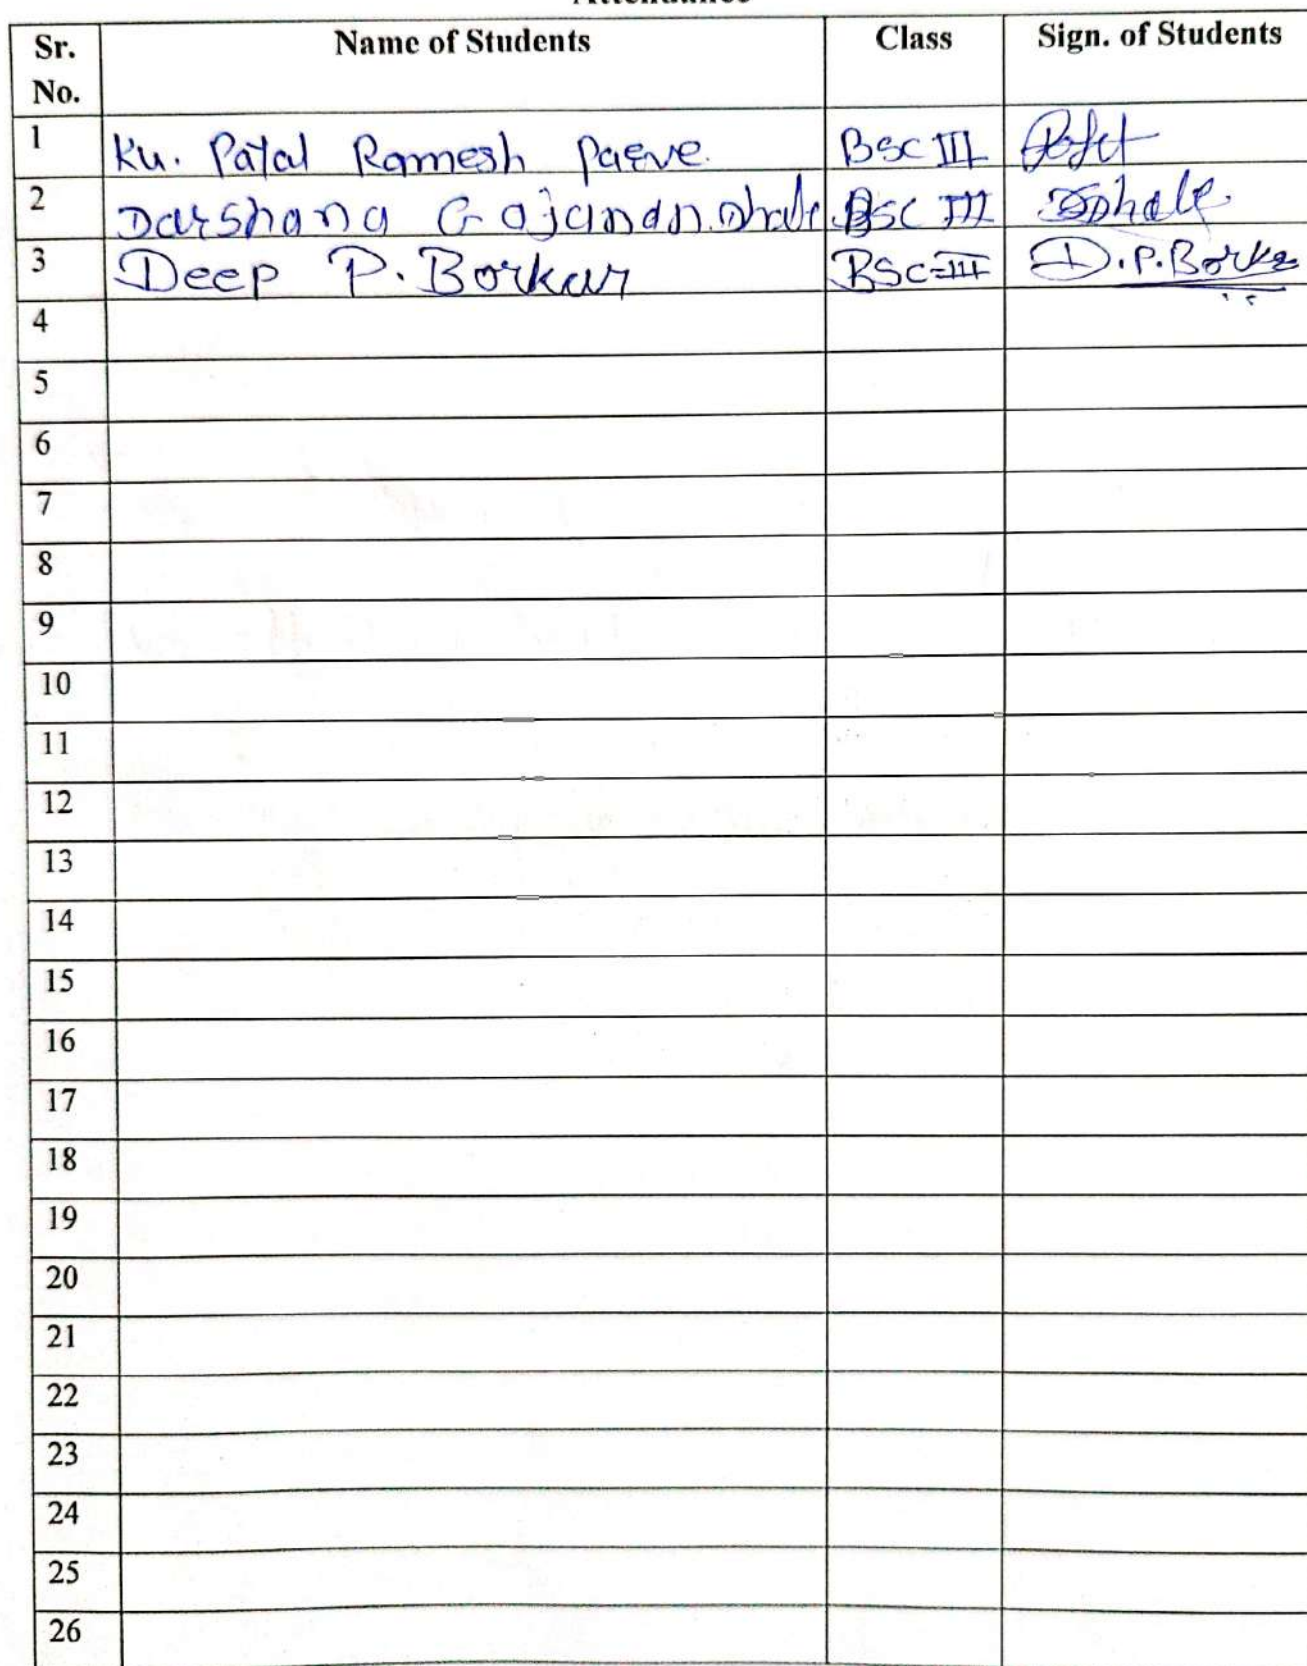 Attendance
Sr. No. Name of Students Class Sign. of Students
1 Ku. Payal Ramesh BSc III
2 Darshana Gajanan Dhale BSc III Dhale
3 Deep P. Borkar BSc-III D.P.Borkar
4
5
6
7
8
9
10
11
12
13
14
15
16
17
18
19
20
21
22
23
24
25
26